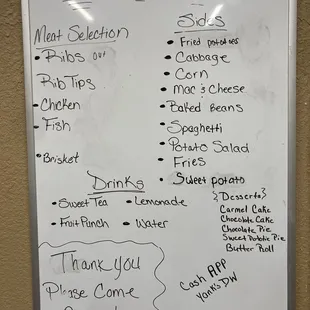 Meat Selection
• Ribs out
Rib Tips
• Chicken
• Fish
• Brisket
Sides
• Fried potatoes
• Cabbage
• Corn
• Mac & Cheese
• Baked Beans
• Spaghetti
• Potato Salad
• Fries
• Sweet potato
Drinks
• Sweet Tea • Lemonade
• Fruit Punch • Water
{Desserts}
Carmel Cake
Chocolate Cake
Chocolate Pie
Sweet Potato Pie
Butter Roll
Thank you
Please Come
Cash APP
YonksDW